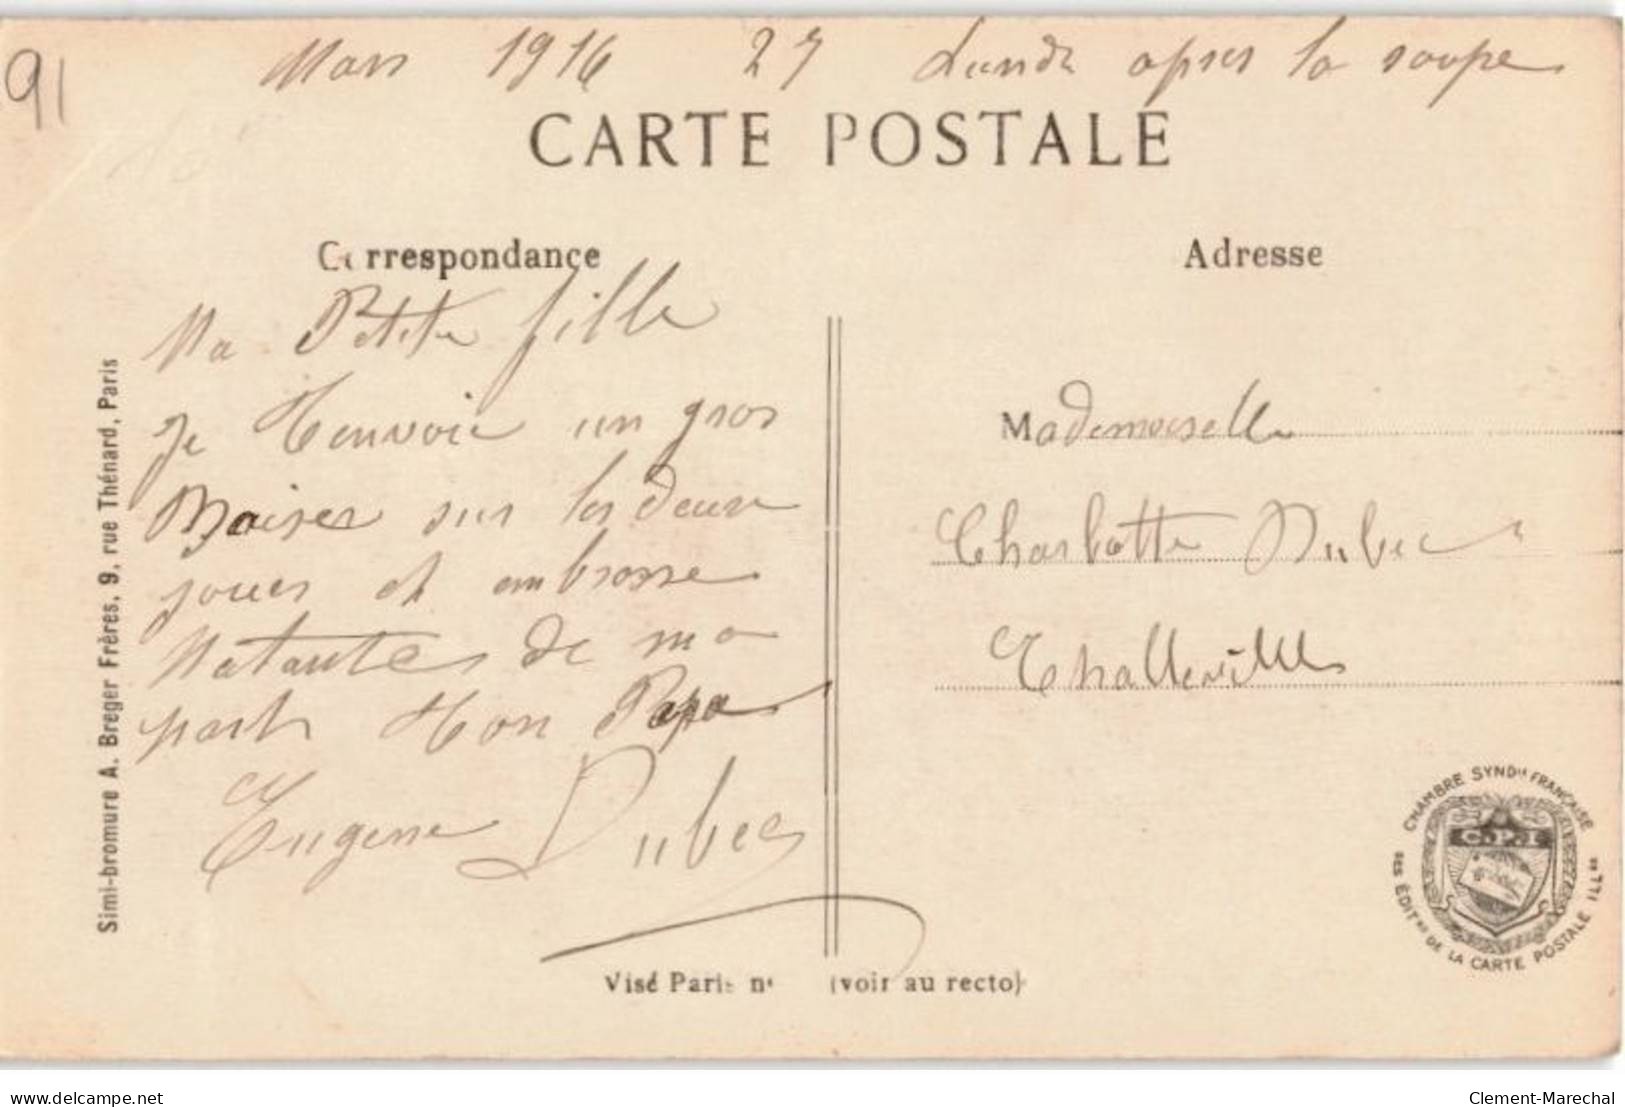 91
Mars 1916 27 Lundi apres la soupe
CARTE POSTALE
Correspondance
Adresse
Ma Petite fille
Je t'envoie un gros
Baiser sur les deux
joues et embrasse
tatantes de ma
part ton Papa
Eugene Dubec
Mademoiselle
Charlotte Dubec
Thalleville
Simi-bromure A. Breger Frères, 9, rue Thénard, Paris
Visé Paris nº (voir au recto)
CHAMBRE SYNDle FRANÇAISE
C.P.I
DES ÉDITrs DE LA CARTE POSTALE ILLée
delcampe.net
Clement-Marechal